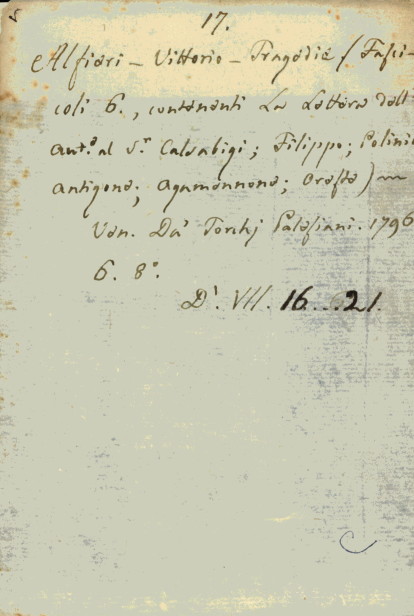 17.
Alfieri - Vittorio - Tragedie / Fasci-
coli 6., contenenti La Lettera dell'
Aut.e al S.r Calsabigi; Filippo; Polinic
Antigone; Agamennone; Oreste) ~
Ven. Da' Torchj Palesiani. 1796
6. 8°.
D'. VII. 16...21.